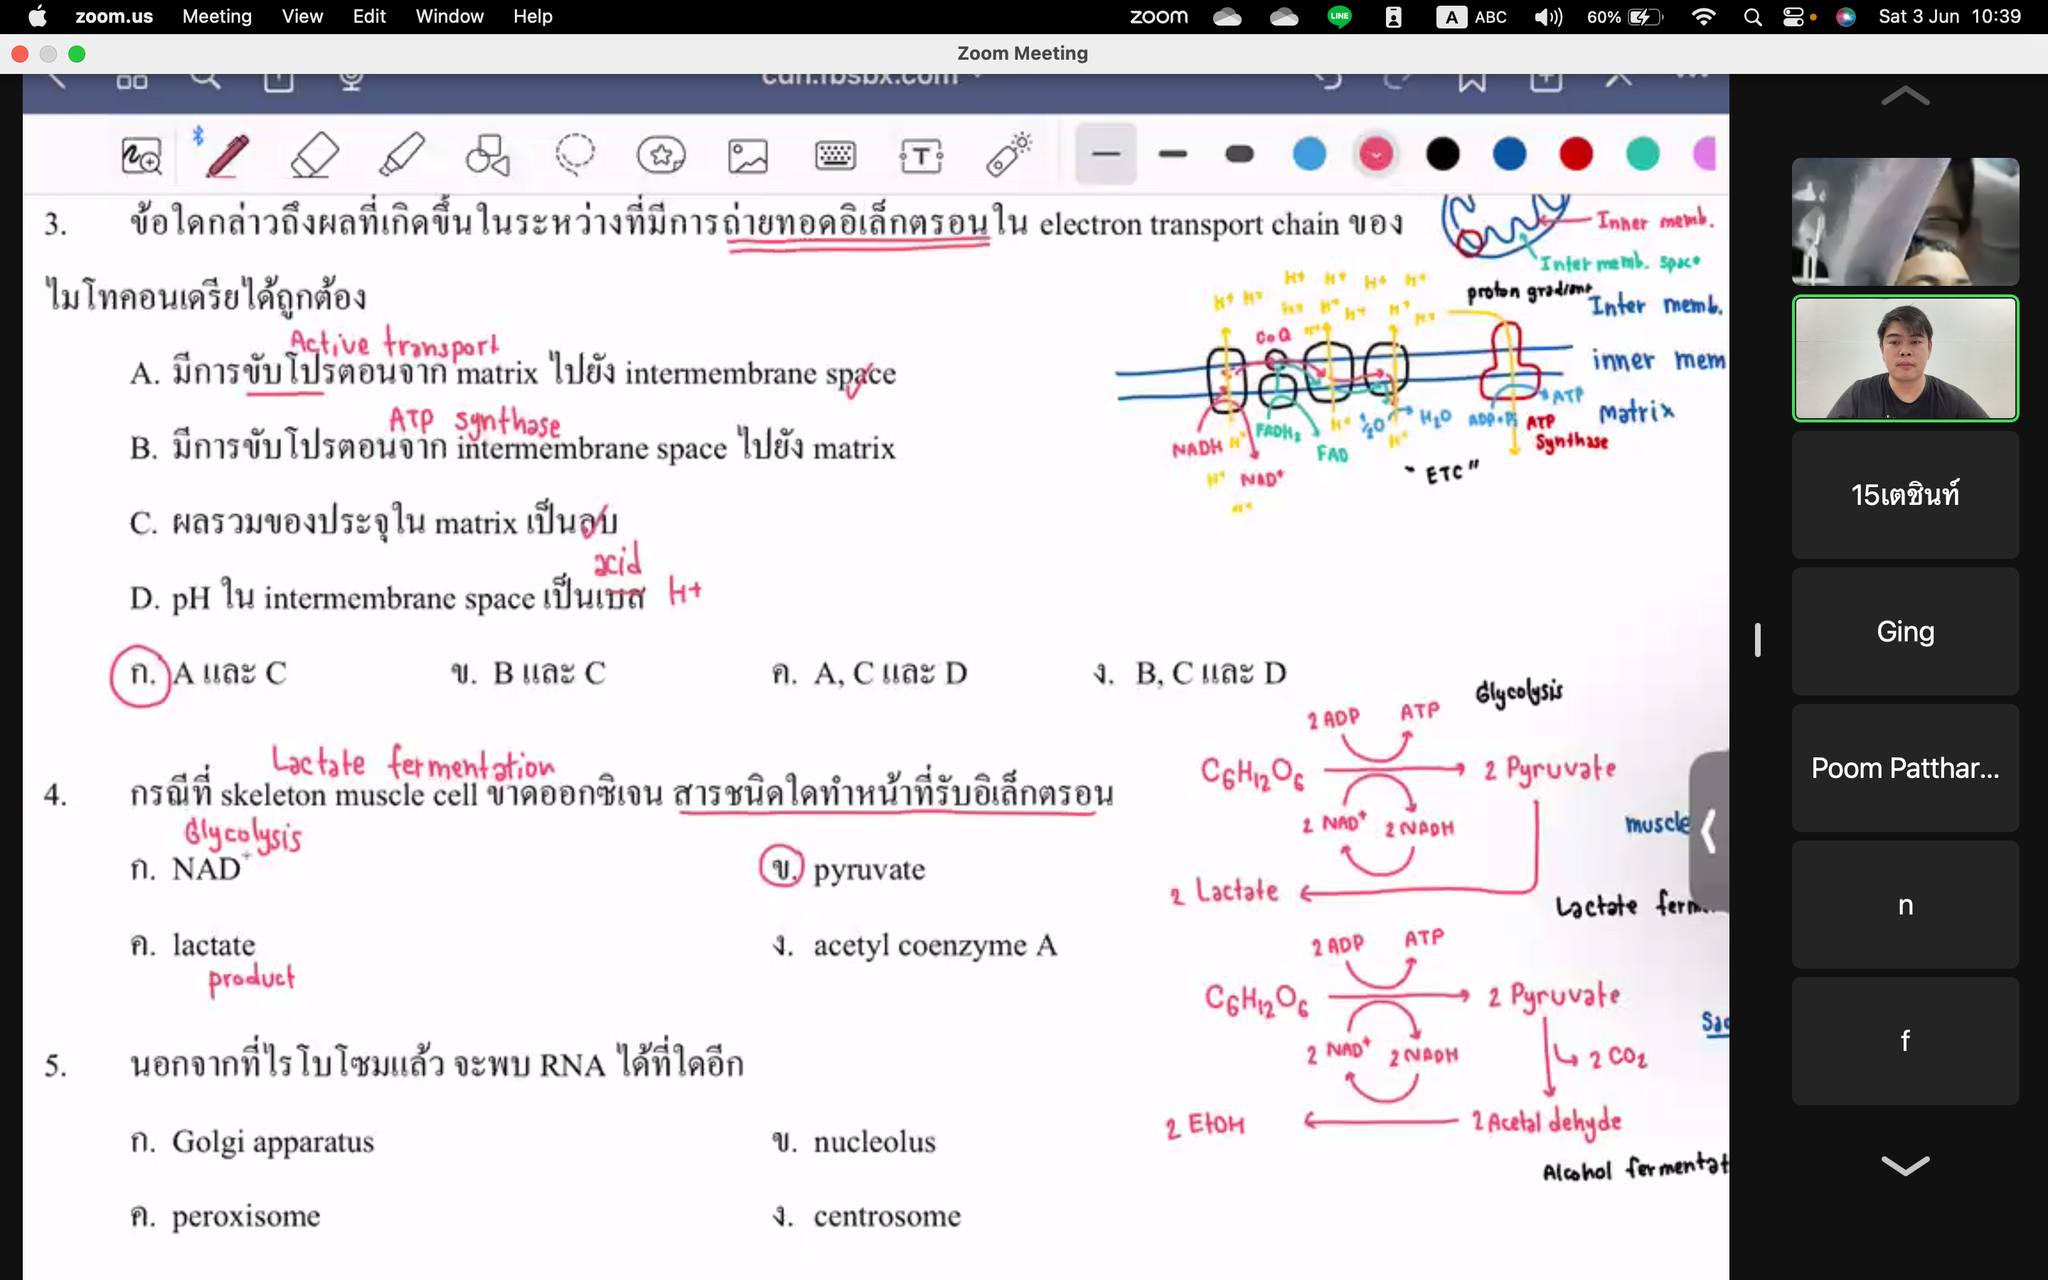 zoom.us Meeting View Edit Window Help zoom LINE A ABC 60% Sat 3 Jun 10:39
Zoom Meeting
cdn.fbsbx.com
T
3. ข้อใดกล่าวถึงผลที่เกิดขึ้นในระหว่างที่มีการถ่ายทอดอิเล็กตรอนใน electron transport chain ของ
ไมโทคอนเดรียได้ถูกต้อง
Active transport
A. มีการขับโปรตอนจาก matrix ไปยัง intermembrane space
ATP synthase
B. มีการขับโปรตอนจาก intermembrane space ไปยัง matrix
C. ผลรวมของประจุใน matrix เป็นลบ
acid
D. pH ใน intermembrane space เป็นเบส H+
ก. A และ C ข. B และ C ค. A, C และ D ง. B, C และ D
Inner memb.
Inter memb. space
proton gradient
Inter memb.
H+ H+ H+ H+
H+ H+ H+ H+ H+ H+ H+
CoQ
inner mem
Matrix
NADH H+ FADH2 H+ ½O H2O ADP+Pi ATP
FAD H+ ATP Synthase
H+ NAD+ "ETC"
H+
Lactate fermentation
4. กรณีที่ skeleton muscle cell ขาดออกซิเจน สารชนิดใดทำหน้าที่รับอิเล็กตรอน
Glycolysis
ก. NAD+ ข. pyruvate
ค. lactate ง. acetyl coenzyme A
product
Glycolysis
2 ADP ATP
C6H12O6 2 Pyruvate
2 NAD+ 2 NADH muscle
2 Lactate
Lactate ferm
2 ADP ATP
C6H12O6 2 Pyruvate
2 NAD+ 2 NADH 2 CO2
2 EtOH 2 Acetal dehyde
Alcohol fermentat
5. นอกจากที่ไรโบโซมแล้ว จะพบ RNA ได้ที่ใดอีก
ก. Golgi apparatus ข. nucleolus
ค. peroxisome ง. centrosome
15เตชินท์
Ging
Poom Patthar...
n
f